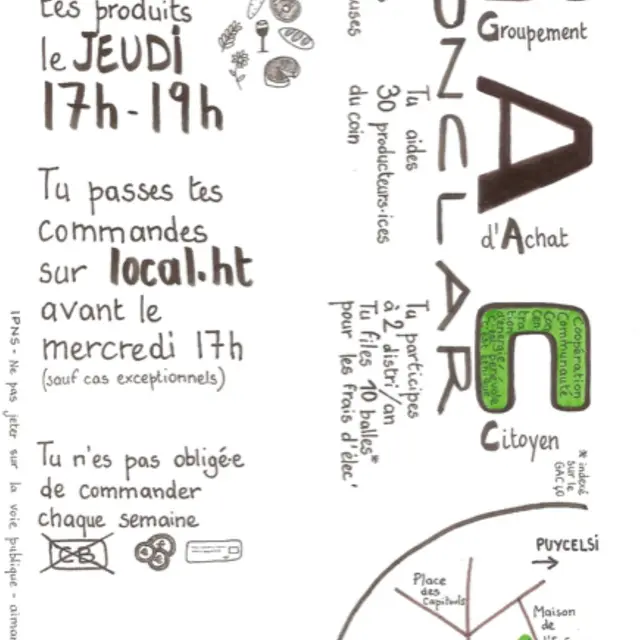 tes produits
le JEUDI
17h-19h
Tu passes tes
commandes
sur local.ht
avant le
mercredi 17h
(sauf cas exceptionnels)
Tu n'es pas obligé·e
de commander
chaque semaine
CB
IPNS - Ne pas jeter sur la voie publique -
Tu aides
30 producteurs·ices
du coin
Tu participes
à 2 distri/an
Tu files 10 balles*
pour les frais d'élec'
NCLAR
Groupement
A
d'Achat
C
Coopération
Communauté
Con
Cen
tra
tion
d'énergie
Citoyen
* indexé
sur le
PUYCELSI
Place
des
Capitouls
Maison
de